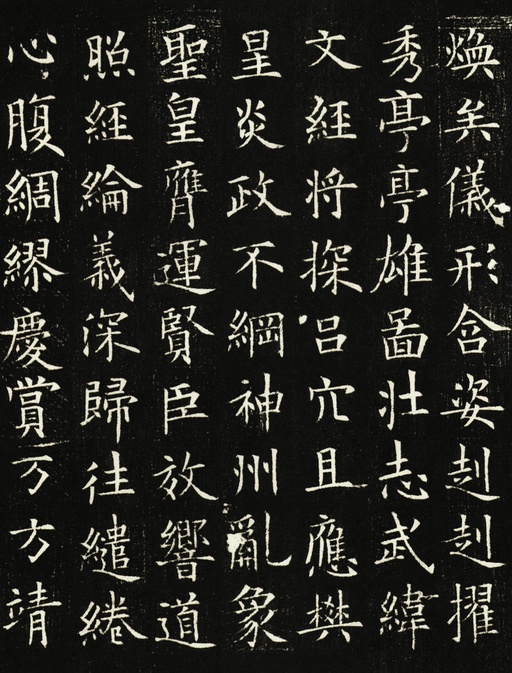 煥矣儀形含姿赳赳擢
秀亭亭雄啚壯志武緯
文經将探呂穴且應樊
星炎政不綱神州亂象
聖皇膺運賢臣放響道
照經綸義深歸往繾綣
心腹綢繆慶賞万方靖